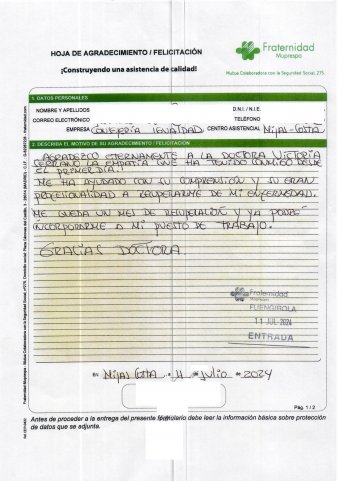 HOJA DE AGRADECIMIENTO / FELICITACIÓN
¡Construyendo una asistencia de calidad!
Fraternidad
Muprespa
Mutua Colaboradora con la Seguridad Social, 275
1. DATOS PERSONALES
NOMBRE Y APELLIDOS
D.N.I. / N.I.E.
CORREO ELECTRÓNICO
TELÉFONO
EMPRESA CONSEJERÍA IGUALDAD CENTRO ASISTENCIAL MIJAS-COSTA
2. DESCRIBA EL MOTIVO DE SU AGRADECIMIENTO / FELICITACIÓN
AGRADEZCO ETERNAMENTE A LA DOCTORA VICTORIA
SERRANO LA EMPATÍA QUE HA TENIDO CONMIGO DESDE
EL PRIMER DÍA!
ME HA AYUDADO CON SU COMPRENSIÓN Y SU GRAN
PROFESIONALIDAD A RECUPERARME DE MI ENFERMEDAD.
ME QUEDA UN MES DE RECUPERACIÓN Y YA PODRÉ
INCORPORARME A MI PUESTO DE TRABAJO.
GRACIAS DOCTORA.
Fraternidad
Muprespa
FUENGIROLA
11 JUL 2024
ENTRADA
En MIJAS COSTA a 11 de Julio de 2024
Pág. 1 / 2
Antes de proceder a la entrega del presente formulario debe leer la información básica sobre protección
de datos que se adjunta.